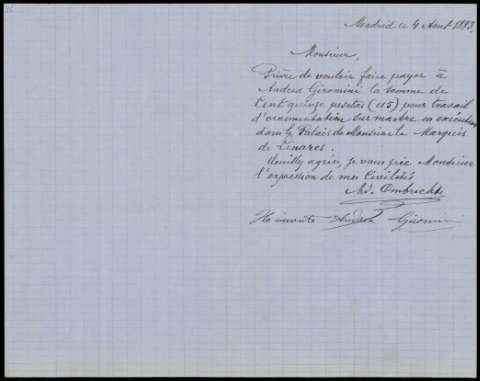 Madrid le 4 Aout 1883.
Monsieur,
Prière de vouloir faire payer à
Andrea Giromini la somme de
Cent quinze pesetas (115) pour travail
d'ornementation sur marbre en exécution
dans le Palais de Monsieur le Marquis
de Linares.
Veuillez agréer, je vous prie Monsieur
l'expression de mes Civilités
Ad. Ombrecht
Andrea Giromini